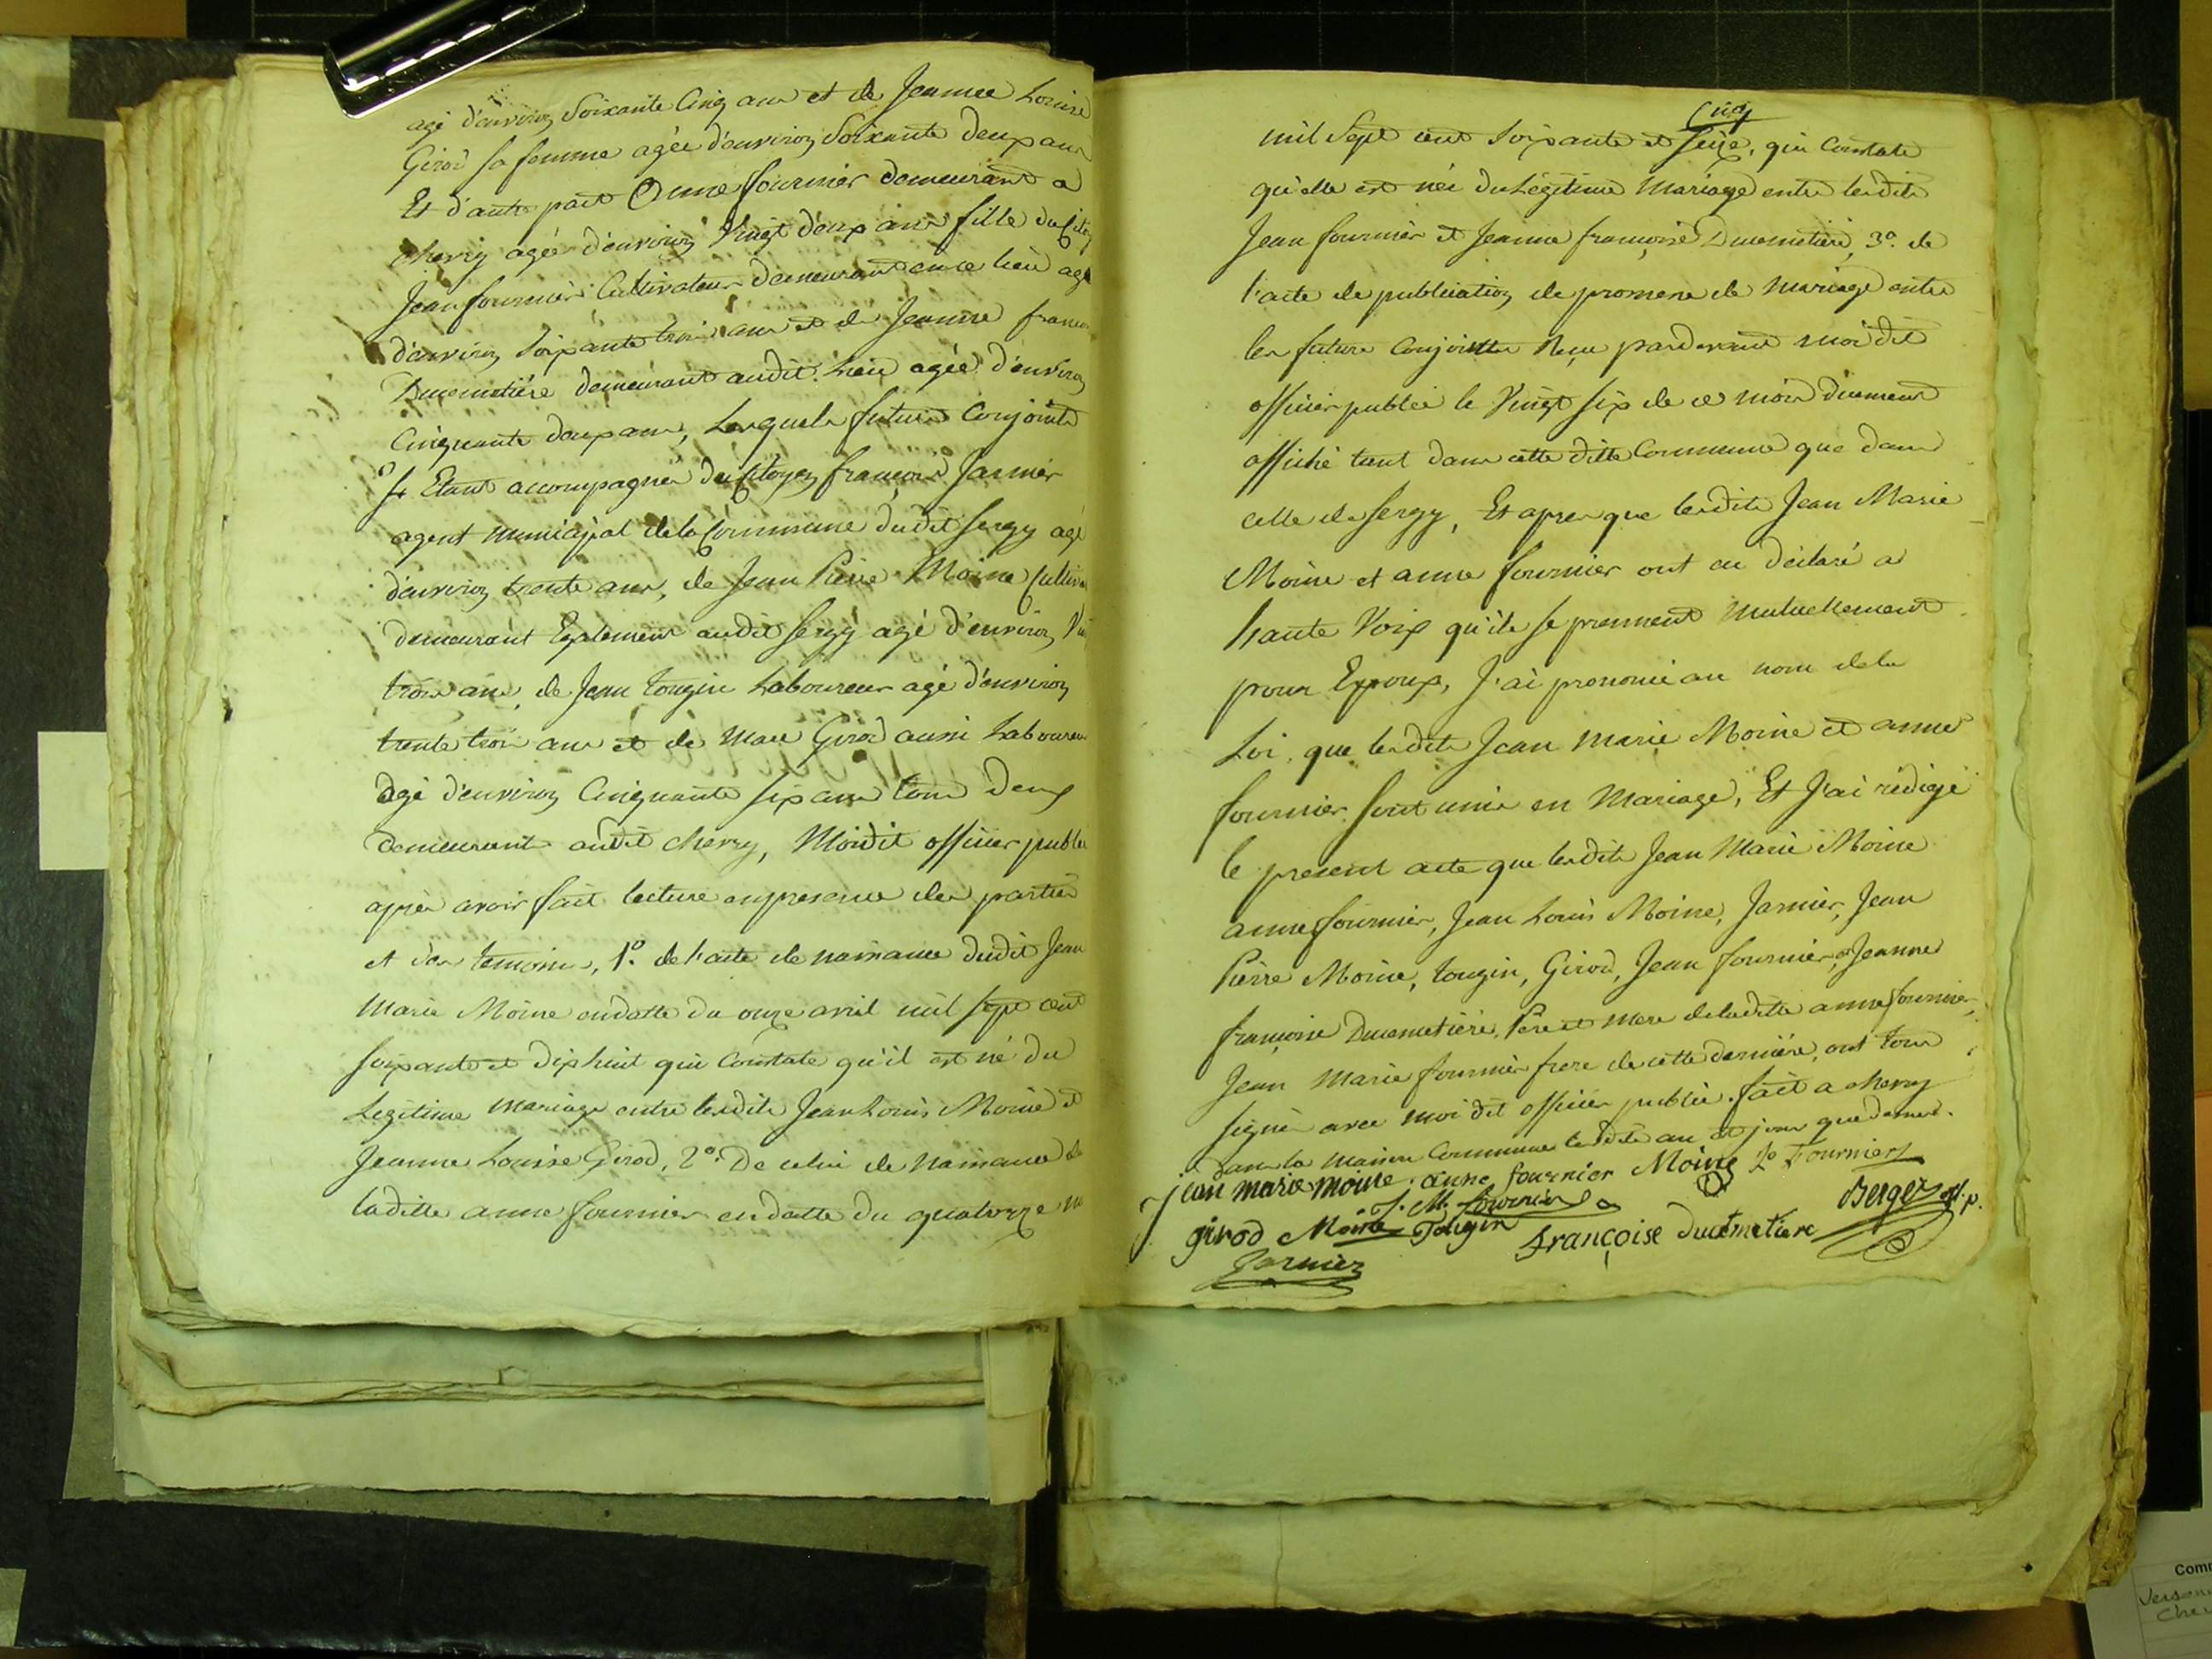 agé d'environ Soixante Cinq ans et de Jeanne Louise
Girod sa femme agée d'environ Soixante deux ans
Et d'autre part Anne fournier demeurant a
chevry agée d'environ Vingt deux ans fille du Citoy
Jean fournier Cultivateur demeurant en ce lieu agé
d'environ Soixante trois ans et de Jeanne franço
Ducemetiére demeurant audit Lieu agée d'environ
Cinquante deux ans, Lesquels futurs Conjoints
Etant accompagnés du Citoyen françois Jarnier
agent municipal de la Commune dudit Sergy agé
d'environ trente ans, de Jean Pierre Moine Cultiva
demeurant Egalement audit Sergy agé d'environ Vin
trois ans, de Jean Tougin Laboureur agé d'environ
trente trois ans et de Marc Girod aussi Laboureur
agé d'environ Cinquante six ans tous deux
demeurant audit chevry, Moidit officier public
après avoir fait lecture en presence des parties
et des temoins, 1º. de l'acte de naissance dudit Jean
Marie Moine en datte du onze avril mil sept cent
soixante et dix huit qui Constate qu'il est né du
Legitime mariage entre lesdits Jean Louis Moine et
Jeanne Louise Girod, 2º. De celui de Naissance de
laditte anne fournier en datte du quatorze
Cinq
mil Sept cent soixante et seize, qui Constate
qu'elle est née du Légitime Mariage entre lesdits
Jean fournier et Jeanne françoise Ducemetiére, 3º. de
l'acte de publication de promesse de Mariage entre
les futurs Conjoints Reçue pardevant moi dit
officier public le Vingt six de ce mois duement
affiché tant dans cette ditte Commune que dans
celle de Sergy, Et apres que lesdits Jean Marie
Moine et anne fournier ont eu déclaré a
haute Voix qu'ils se prennent Mutuellement
pour Epoux, J'ai prononcé au nom de la
Loi, que lesdits Jean Marie Moine et anne
fournier sont unis en Mariage, Et J'ai rédigé
le present acte que lesdits Jean Marie Moine
anne fournier, Jean Louis Moine, Jarnier, Jean
Pierre Moine, Tougin, Girod, Jean fournier, et Jeanne
françoise Ducemetiére, Pere et Mere de laditte anne fournier,
Jean Marie fournier frere de cette derniére, ont tous
signés avec moi dit officier public. fait a chevry
dans la Maison Commune lesdits an et jour que devant.
jean marie moine. anne fournier Moine Je Fournier
J. M. fournier
girod Moine Tougin françoise ducemetiere Berger off. p.
Jarnier
Comm
Verson
Chev